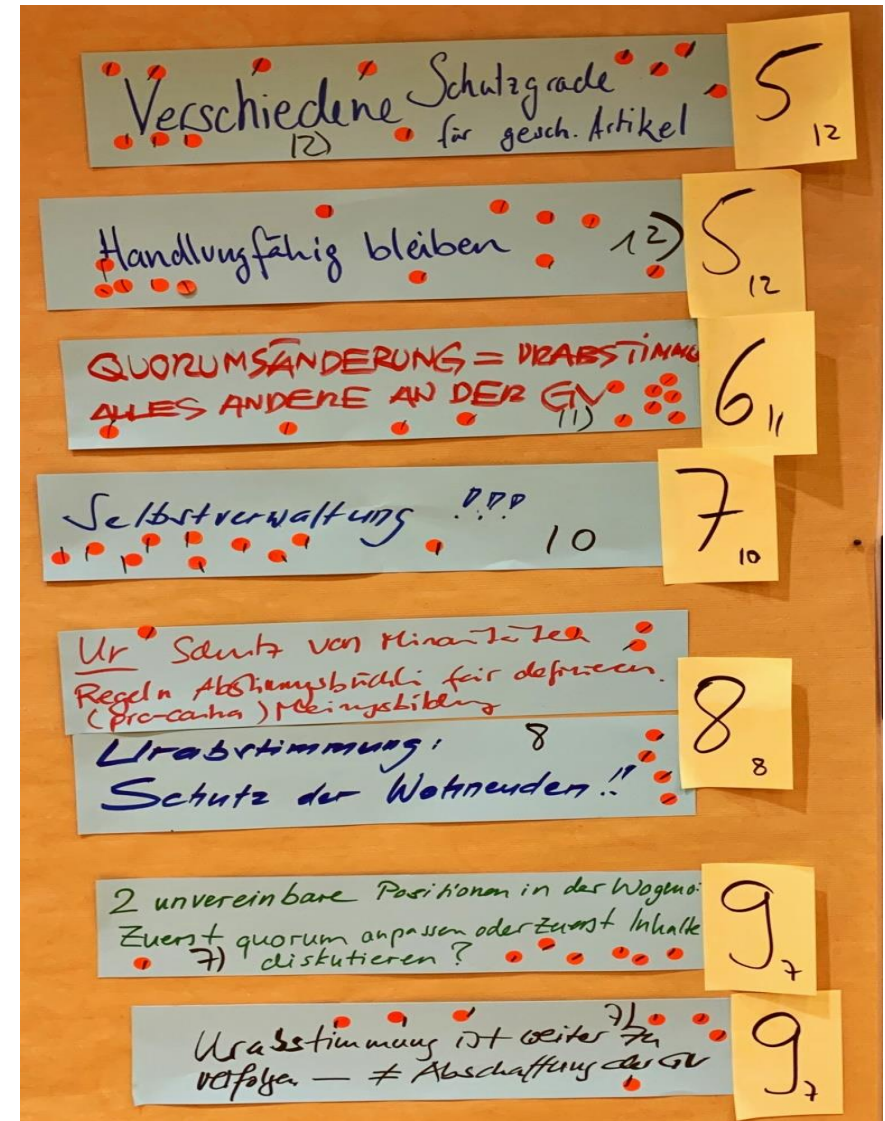 Verschiedene Schutzgrade
für gesch. Artikel
12)
5
12
Handlungfähig bleiben 12)
5
12
QUORUMSÄNDERUNG = URABSTIMMU
ALLES ANDERE AN DER GV
11)
6
11
Selbstverwaltung !!!
10
7
10
Ur Schutz von Minoritäten
Regeln Abstimmungsbüchli fair definieren.
(pro-contra) Meinungsbildung
8
Urabstimmung:
Schutz der Wohnenden !!
8
8
2 unvereinbare Positionen in der Wogeno:
Zuerst quorum anpassen oder zuerst Inhalte
7) diskutieren ?
9
7
7)
Urabstimmung ist weiter zu
verfolgen — ≠ Abschaffung der GV
9
7